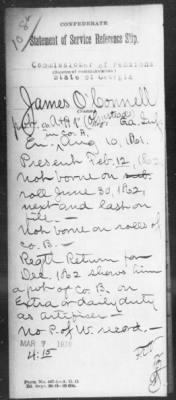 CONFEDERATE
Statement of Service Reference Slip.
Commissioner of Pensions
State of Georgia
James O'Connell
(Name)
pvt. Co. A
in Co. A.
En. Aug 10, 1861.
Present Feb. 12, 1862,
not borne on
roll June 30, 1862,
next and last on
file.—
Not borne on rolls of
Co. B.—
Regtl Return for
Dec. 1862 shows him
a pvt of Co. B. on
Extra or daily duty
as artificer—
no P. of W. record.—
MAR 7